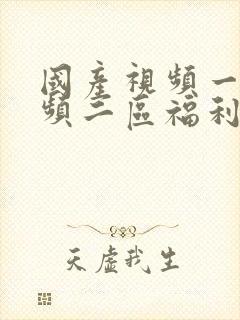 國產視頻一
頻二區福利
天虛我生